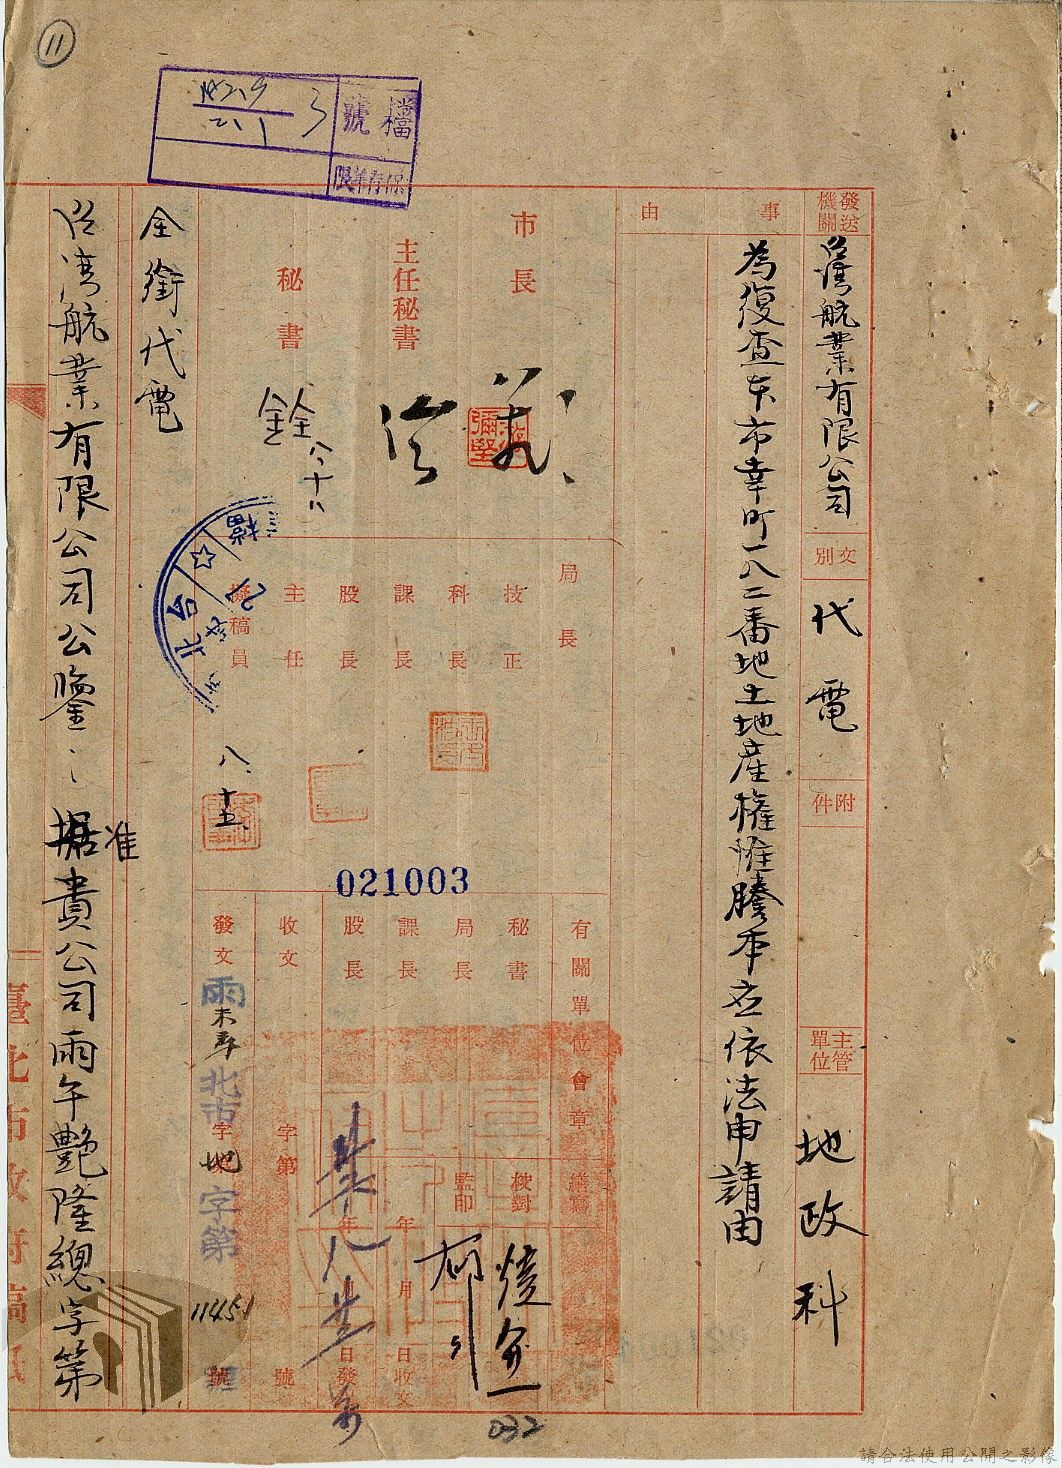 11
檔號
3
保存年限
發送機關
臺灣航業有限公司
文別
代電
附件
主管單位
地政科
事由
為復查本市幸町一八二番地土地產權惟謄本應依法申請由
市長
主任秘書
秘書
銓
八、十八
局長
技正
科長
課長
股長
主任
擬稿員
八、十五、
021003
有關單位會章
秘書
局長
課長
股長
繕寫
校對
監印
年月日收文
年月日發
收文
字第
號
發文
字第
號
北市
地
字第
11451
號
032
全銜代電
台灣航業有限公司公鑒：據准貴公司雨午艷隆總字第
臺北市政府稿紙
請合法使用公開之影像